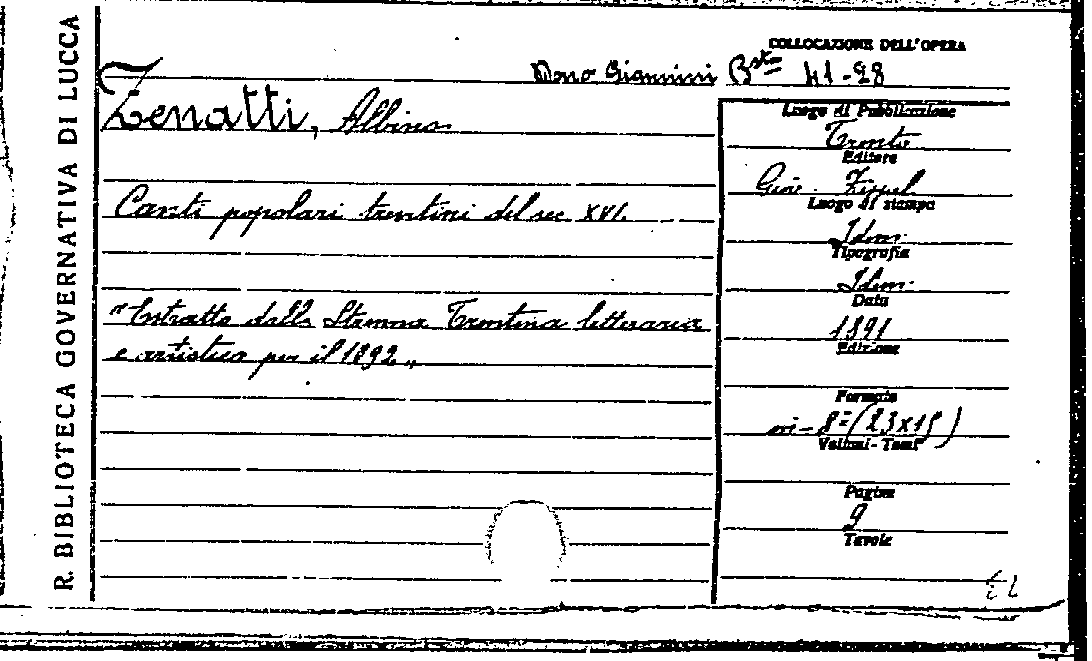 R. BIBLIOTECA GOVERNATIVA DI LUCCA
COLLOCAZIONE DELL'OPERA
Dono Giannini Bta 41-28
Zenatti, Albino
Canti popolari trentini del sec XVI.
"Estratto dalla Strenna Trentina letteraria
e artistica per il 1892„
Luogo di Pubblicazione
Trento
Editore
Giov. Zippel
Luogo di stampa
Idem.
Tipografia
Idem.
Data
1891
Edizione
Formato
in-8º (23x15)
Volumi-Tomi
Pagine
9
Tavole